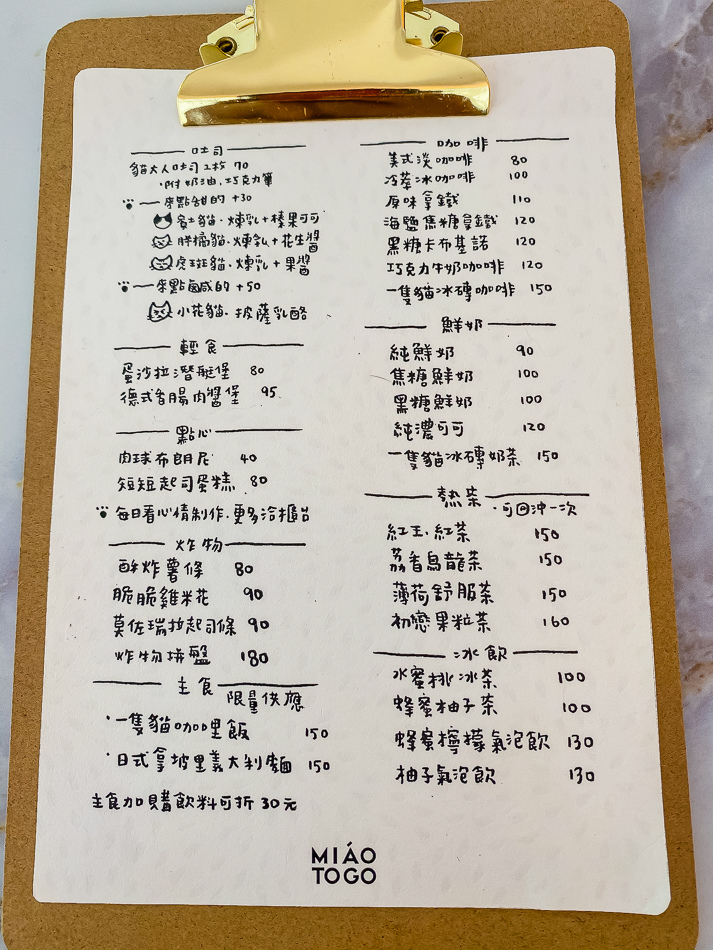 吐司
貓大人吐司2枚 70
·附奶油、巧克力筆
來點甜的 +30
賓士貓·煉乳+榛果可可
胖橘貓·煉乳+花生醬
虎斑貓·煉乳+果醬
來點鹹的 +50
小花貓·披薩乳酪
輕食
蛋沙拉潛艇堡 80
德式香腸肉醬堡 95
點心
肉球布朗尼 40
短短起司蛋糕 80
每日看心情製作·更多洽櫃台
炸物
酥炸薯條 80
脆脆雞米花 90
莫佐瑞拉起司條 90
炸物拼盤 180
主食 限量供應
·一隻貓咖哩飯 150
·日式拿坡里義大利麵 150
主食加購飲料可折30元
咖啡
美式淡咖啡 80
冷萃冰咖啡 100
原味拿鐵 110
海鹽焦糖拿鐵 120
黑糖卡布基諾 120
巧克力牛奶咖啡 120
一隻貓冰磚咖啡 150
鮮奶
純鮮奶 90
焦糖鮮奶 100
黑糖鮮奶 100
純濃可可 120
一隻貓冰磚奶茶 150
熱茶 ·可回沖一次
紅玉·紅茶 150
荔香烏龍茶 150
薄荷舒服茶 150
初戀果粒茶 160
冰飲
水蜜桃冰茶 100
蜂蜜柚子茶 100
蜂蜜檸檬氣泡飲 130
柚子氣泡飲 130
MIÁO
TOGO